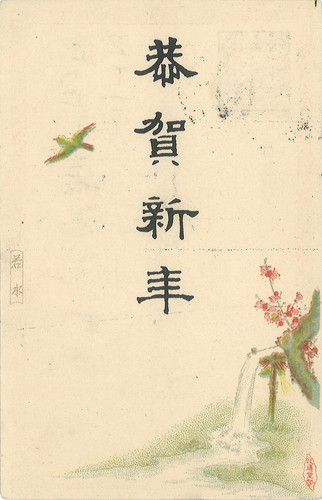 恭賀新年
若水